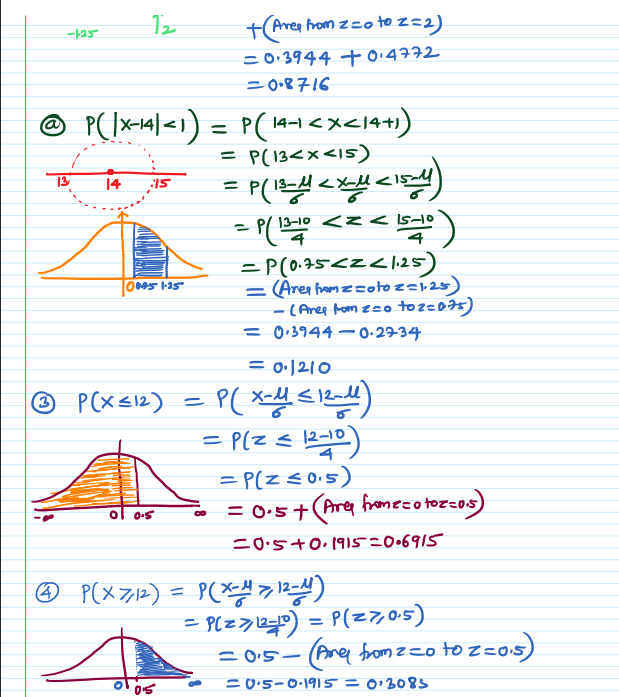 -1.25 2 +(Area from z=0 to z=2)
= 0.3944 + 0.4772
= 0.8716
ⓐ P(|X-14|<1) = P(14-1<X<14+1)
= P(13<X<15)
13 14 15
= P((13-μ)/σ < (X-μ)/σ < (15-μ)/σ)
= P((13-10)/4 < Z < (15-10)/4)
= P(0.75<Z<1.25)
0 0.75 1.25
= (Area from z=0 to z=1.25)
- (Area from z=0 to z=0.75)
= 0.3944 - 0.2734
= 0.1210
③ P(X≤12) = P((X-μ)/σ ≤ (12-μ)/σ)
= P(Z ≤ (12-10)/4)
= P(Z ≤ 0.5)
-∞ 0 0.5 ∞
= 0.5 + (Area from z=0 to z=0.5)
= 0.5 + 0.1915 = 0.6915
④ P(X≥12) = P((X-μ)/σ ≥ (12-μ)/σ)
= P(Z≥(12-10)/4) = P(Z≥0.5)
= 0.5 - (Area from z=0 to z=0.5)
0 0.5 ∞
= 0.5 - 0.1915 = 0.3085